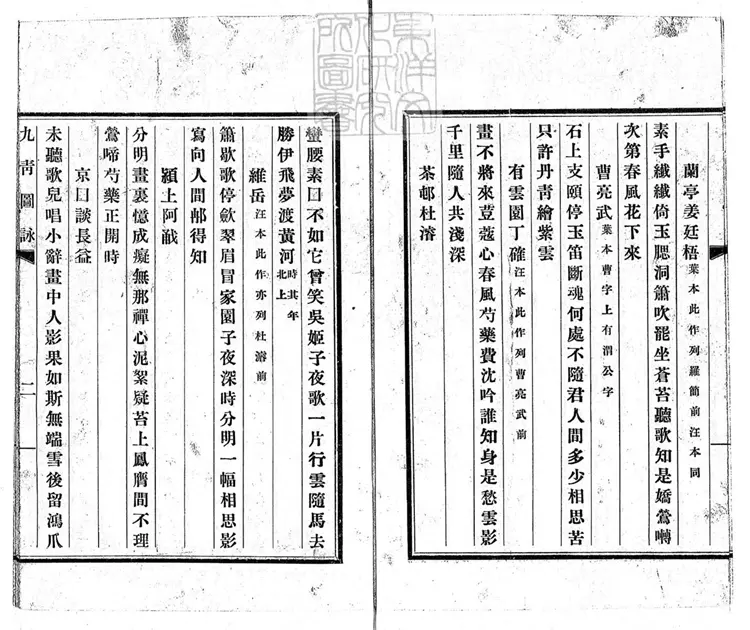 蘭亭姜廷梧葉本此作列羅簡前汪本同
素手纖纖倚玉腮洞簫吹罷坐蒼苔聽歌知是嬌鶯囀
次第春風花下來
曹亮武葉本曹字上有渭公字
石上支頤停玉笛斷魂何處不隨君人間多少相思苦
只許丹青繪紫雲
有雲園丁確汪本此作列曹亮武前
畫不將來荳蔻心春風芍藥費沈吟誰知身是愁雲影
千里隨人共淺深
茶邨杜濬
蠻腰素口不如它曾笑吳姬子夜歌一片行雲隨馬去
勝伊飛夢渡黃河時其年北上
維岳汪本此作亦列杜濬前
簫歇歌停斂翠眉冒家園子夜深時分明一幅相思影
寫向人間邮得知
潁上阿戢
分明畫裏憶成癡無那禪心泥絮疑苔上鳳膺間不理
鶯啼芍藥正開時
京口談長益
未聽歌兒唱小辭畫中人影果如斯無端雪後留鴻爪
九青圖詠
二